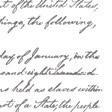 of the United States,
things, the following,
day of January, in the
sand eight hundred
ns held as slaves within
t of a State, the people